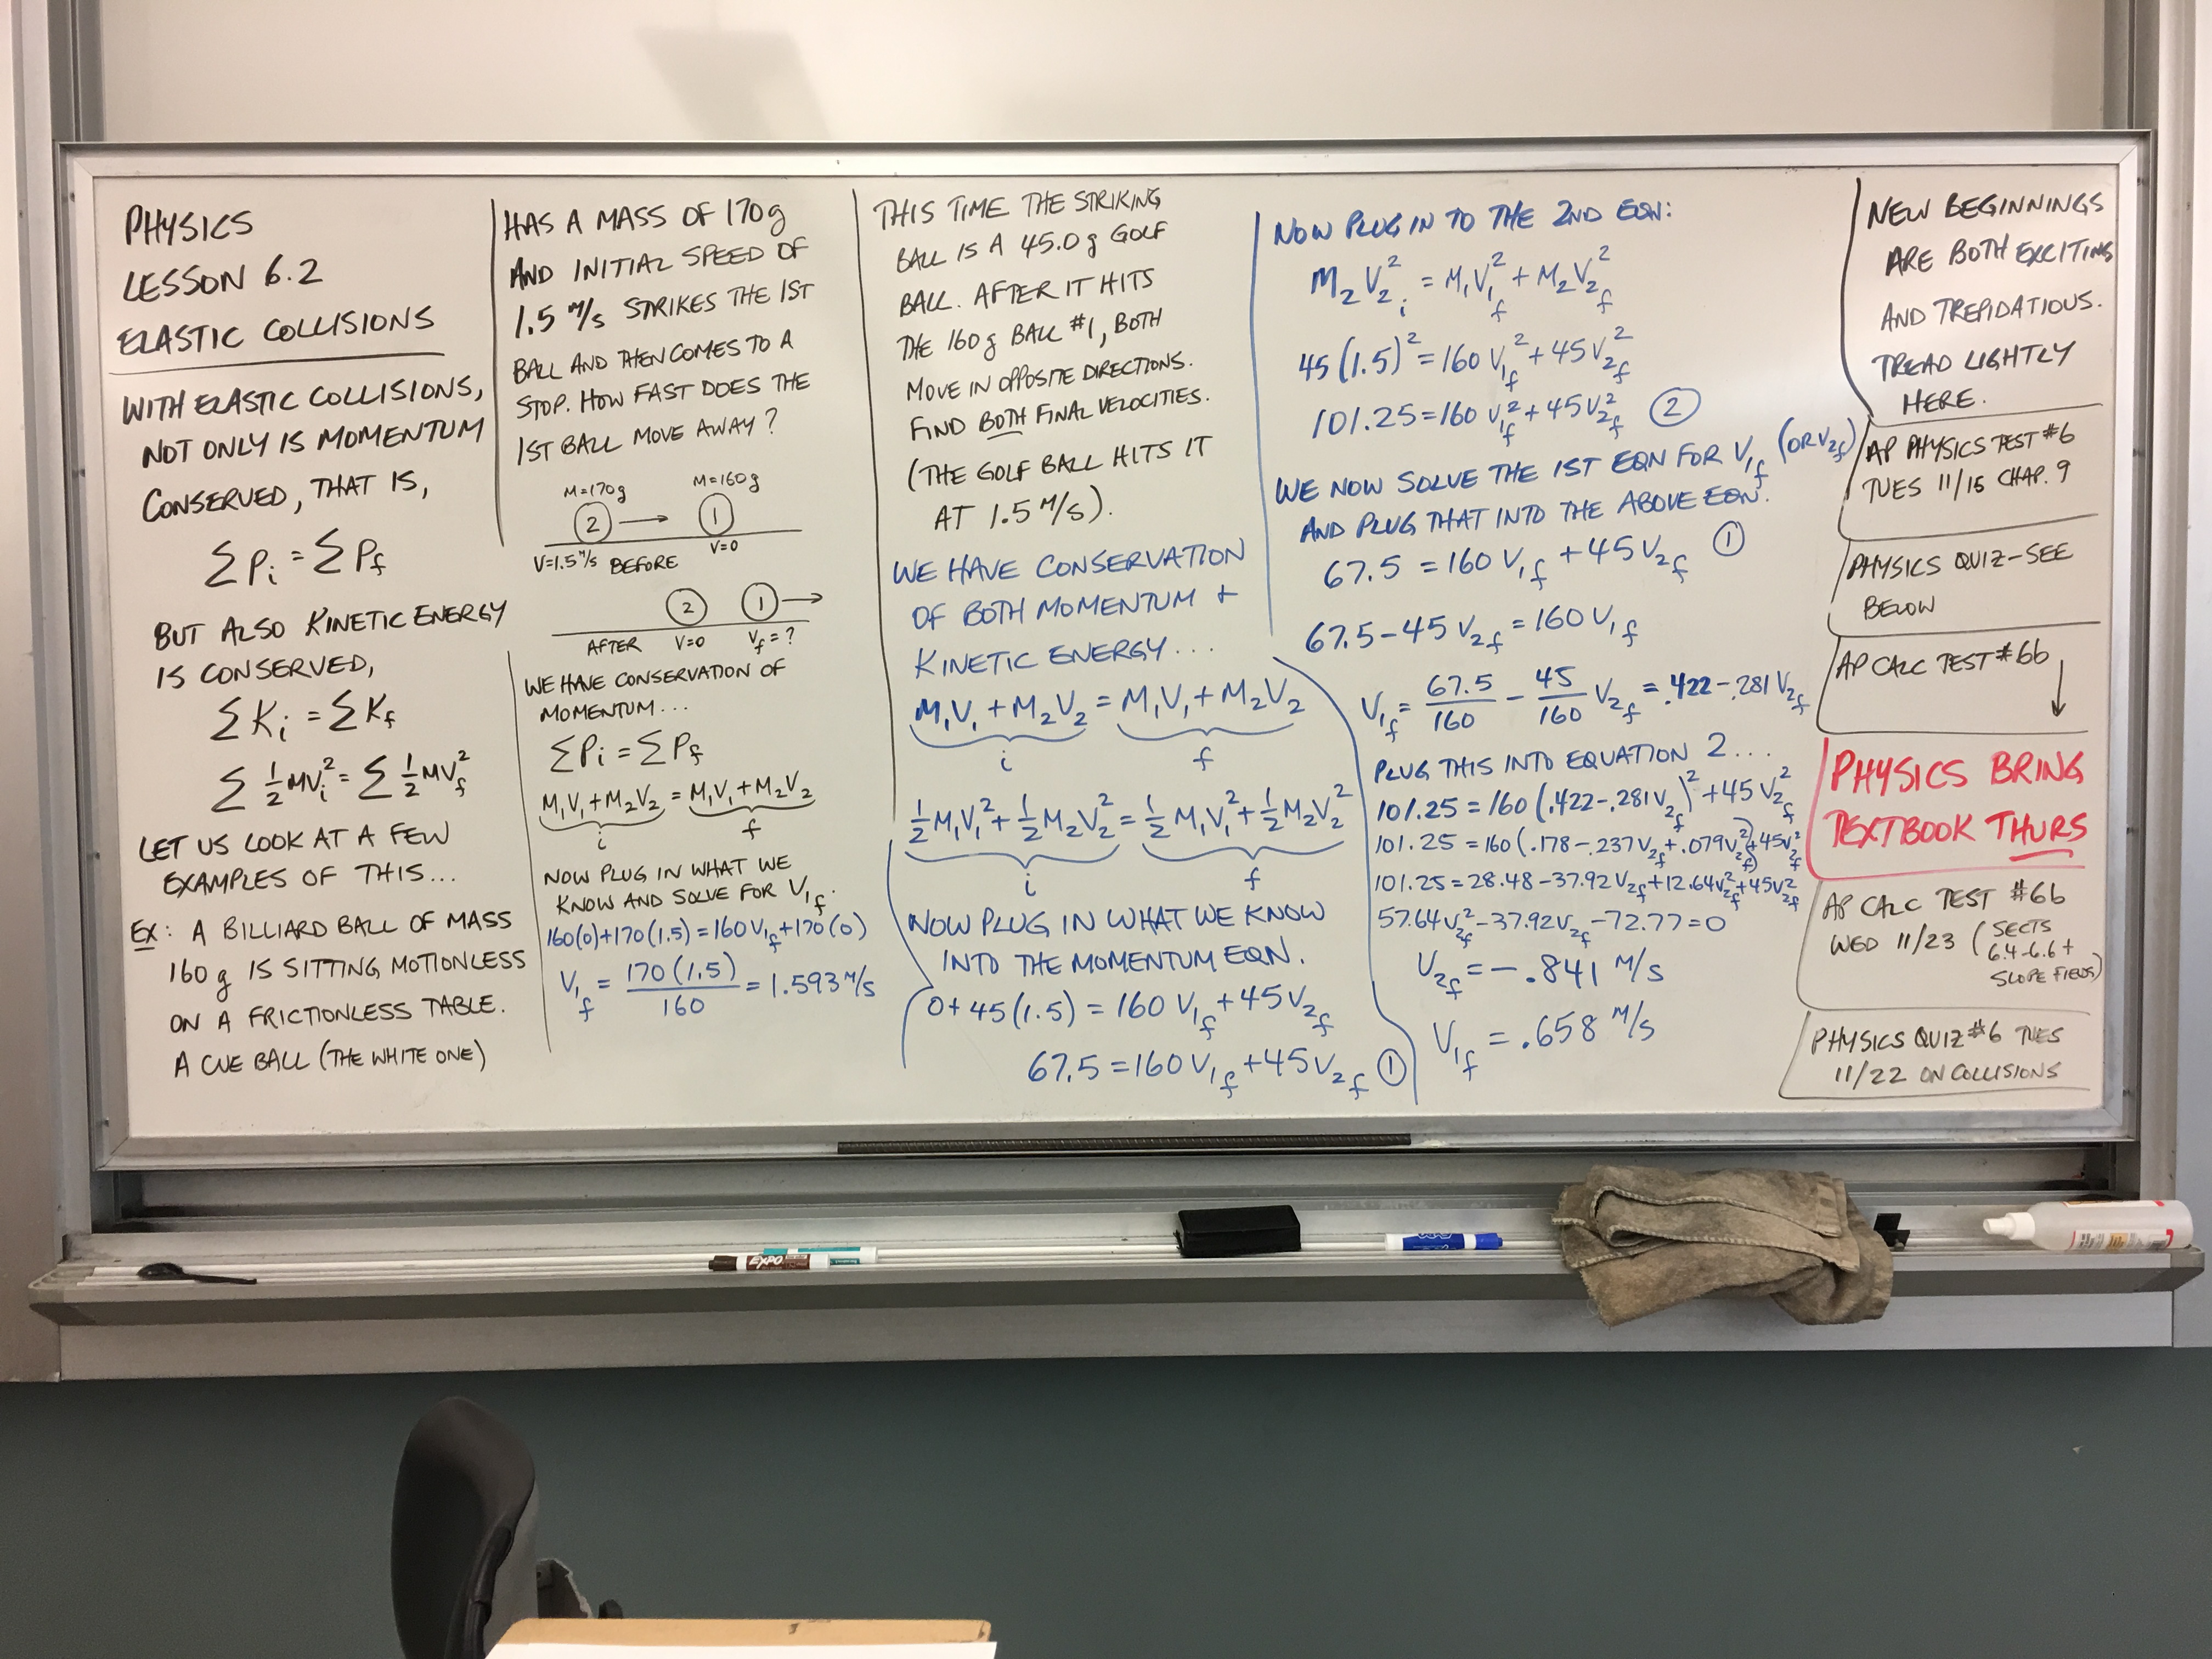 PHYSICS
LESSON 6.2
ELASTIC COLLISIONS
WITH ELASTIC COLLISIONS,
NOT ONLY IS MOMENTUM
CONSERVED, THAT IS,
ΣPᵢ = ΣP_f
BUT ALSO KINETIC ENERGY
IS CONSERVED,
ΣKᵢ = ΣK_f
Σ ½MVᵢ² = Σ ½MV_f²
LET US LOOK AT A FEW
EXAMPLES OF THIS...
EX: A BILLIARD BALL OF MASS
160 g IS SITTING MOTIONLESS
ON A FRICTIONLESS TABLE.
A CUE BALL (THE WHITE ONE)
HAS A MASS OF 170g
AND INITIAL SPEED OF
1.5 M/S STRIKES THE 1ST
BALL AND THEN COMES TO A
STOP. HOW FAST DOES THE
1ST BALL MOVE AWAY?
M=170g M=160g
2 → 1
V=1.5 M/S BEFORE V=0
2 1 →
AFTER V=0 V_f = ?
WE HAVE CONSERVATION OF
MOMENTUM...
ΣPᵢ = ΣP_f
M₁V₁ + M₂V₂ = M₁V₁ + M₂V₂
i f
NOW PLUG IN WHAT WE
KNOW AND SOLVE FOR V₁f.
160(0)+170(1.5)=160V₁f+170(0)
V₁f = 170(1.5)/160 = 1.593 M/S
THIS TIME THE STRIKING
BALL IS A 45.0g GOLF
BALL. AFTER IT HITS
THE 160g BALL #1, BOTH
MOVE IN OPPOSITE DIRECTIONS.
FIND BOTH FINAL VELOCITIES.
(THE GOLF BALL HITS IT
AT 1.5 M/S).
WE HAVE CONSERVATION
OF BOTH MOMENTUM +
KINETIC ENERGY...
M₁V₁ + M₂V₂ = M₁V₁ + M₂V₂
i f
½M₁V₁² + ½M₂V₂² = ½M₁V₁² + ½M₂V₂²
i f
NOW PLUG IN WHAT WE KNOW
INTO THE MOMENTUM EQN.
0+45(1.5) = 160V₁f + 45V₂f
67.5 = 160V₁f + 45V₂f ①
NOW PLUG IN TO THE 2ND EQN:
M₂V₂ᵢ² = M₁V₁f² + M₂V₂f²
45(1.5)² = 160V₁f² + 45V₂f²
101.25 = 160V₁f² + 45V₂f² ②
WE NOW SOLVE THE 1ST EQN FOR V₁f (OR V₂f)
AND PLUG THAT INTO THE ABOVE EQN.
67.5 = 160V₁f + 45V₂f ①
67.5 - 45V₂f = 160V₁f
V₁f = 67.5/160 - 45/160 V₂f = .422 - .281V₂f
PLUG THIS INTO EQUATION 2...
101.25 = 160(.422-.281V₂f)² + 45V₂f²
101.25 = 160(.178-.237V₂f+.079V₂f²)+45V₂f²
101.25 = 28.48-37.92V₂f+12.64V₂f²+45V₂f²
57.64V₂f²-37.92V₂f-72.77=0
V₂f = -.841 M/S
V₁f = .658 M/S
NEW BEGINNINGS
ARE BOTH EXCITING
AND TREPIDATIOUS.
TREAD LIGHTLY
HERE.
AP PHYSICS TEST #6
TUES 11/15 CHAP. 9
PHYSICS QUIZ-SEE
BELOW
AP CALC TEST #6b ↓
PHYSICS BRING
TEXTBOOK THURS
AP CALC TEST #6b
WED 11/23 (SECTS
6.4-6.6 +
SLOPE FIELDS)
PHYSICS QUIZ #6 TUES
11/22 ON COLLISIONS
EXPO